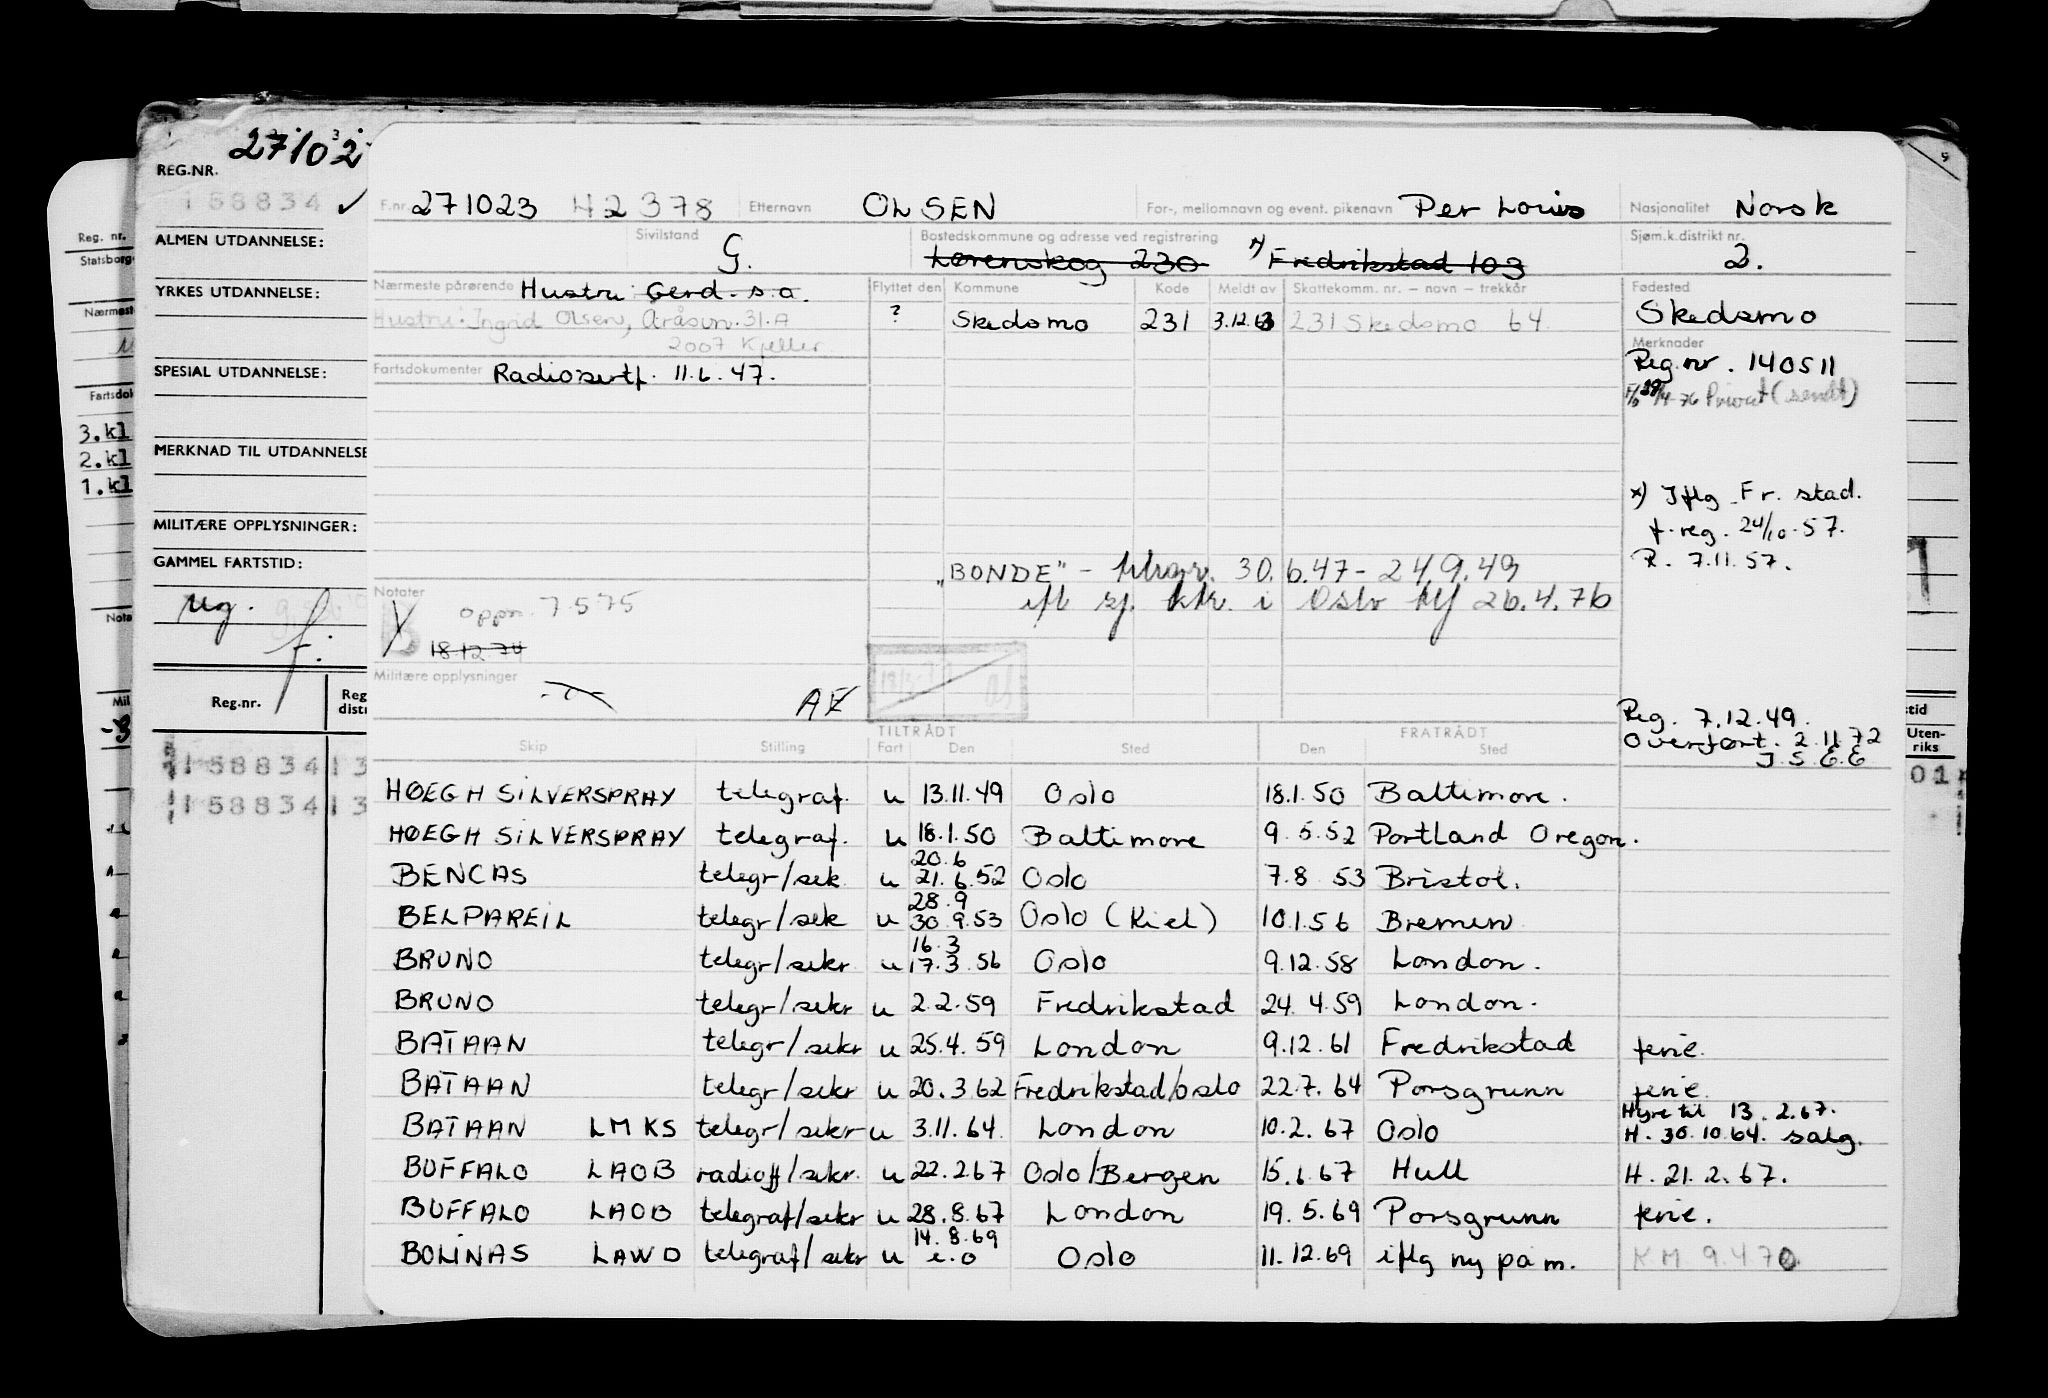 27102
REG.NR.
158834 ✓
ALMEN UTDANNELSE:
YRKES UTDANNELSE:
SPESIAL UTDANNELSE:
MERKNAD TIL UTDANNELSE
MILITÆRE OPPLYSNINGER:
GAMMEL FARTSTID:
Reg.nr.
158834 13
158834 13
Reg. nr.
Statsborg
Nærmest
Fartsdok
3.kl
2.kl
1.kl
Nota
Mil
F.nr. 271023 42378 Etternavn OLSEN For-, mellomnavn og event. pikenavn Per Louis Nasjonalitet Norsk
Sivilstand G. Bostedskommune og adresse ved registrering Lørenskog 230 Fredrikstad 103 Sjøm.k.distrikt nr. 2.
Nærmeste pårørende Hustru Gerd. s.a. Flyttet den Kommune Kode Meldt av Skattekomm. nr. – navn – trekkår Fødested
Hustru: Ingrid Olsen, Åråsvn. 31.A ? Skedsmo 231 3.12.63 231 Skedsmo 64 Skedsmo
2007 Kjeller Merknader
Fartsdokumenter Radiosertf. 11.6.47. Reg.nr. 140511
76 Privat (sendt)
x) Iflg Fr. stad.
f. reg. 24/10-57.
R. 7.11.57.
"BONDE" - 30.6.47 - 24.9.49
Notater oppn. 7.5.75 ifl sj. ktr. i Oslo 26.4.76
18.12.74
Militære opplysninger
Reg. 7.12.49.
Overført. 2.11.72
TILTRÅDT FRATRÅDT
Skip Stilling Fart Den Sted Den Sted
HØEGH SILVERSPRAY telegraf. u 13.11.49 Oslo 18.1.50 Baltimore.
HØEGH SILVERSPRAY telegraf. u 18.1.50 Baltimore 9.5.52 Portland Oregon.
20.6
BENCAS telegr/sek u 21.6.52 Oslo 7.8 53 Bristol.
28.9
BELPAREIL telegr/sek u 30.9.53 Oslo (Kiel) 10.1.56 Bremen
16.3
BRUNO telegr/sekr u 17.3.56 Oslo 9.12.58 London.
BRUNO telegr/sekr u 2.2.59 Fredrikstad 24.4.59 London.
BATAAN telegr/sekr u 25.4.59 London 9.12.61 Fredrikstad ferie.
BATAAN telegr/sekr u 20.3.62 Fredrikstad/Oslo 22.7.64 Porsgrunn ferie.
Hyre til 13.2.67.
BATAAN LMKS telegr/sekr u 3.11.64. London 10.2.67 Oslo H. 30.10.64. salg.
BUFFALO LAOB radioff/sekr. u 22.2.67 Oslo/Bergen 15.6.67 Hull H. 21.2.67.
BUFFALO LAOB telegraf/sekr u 28.8.67 London 19.5.69 Porsgrunn ferie.
14.8.69
BOLINAS LAWD telegraf/sekr u e.o Oslo 11.12.69 iflg ny på m. KM 9.4.70
Uten-
riks
01